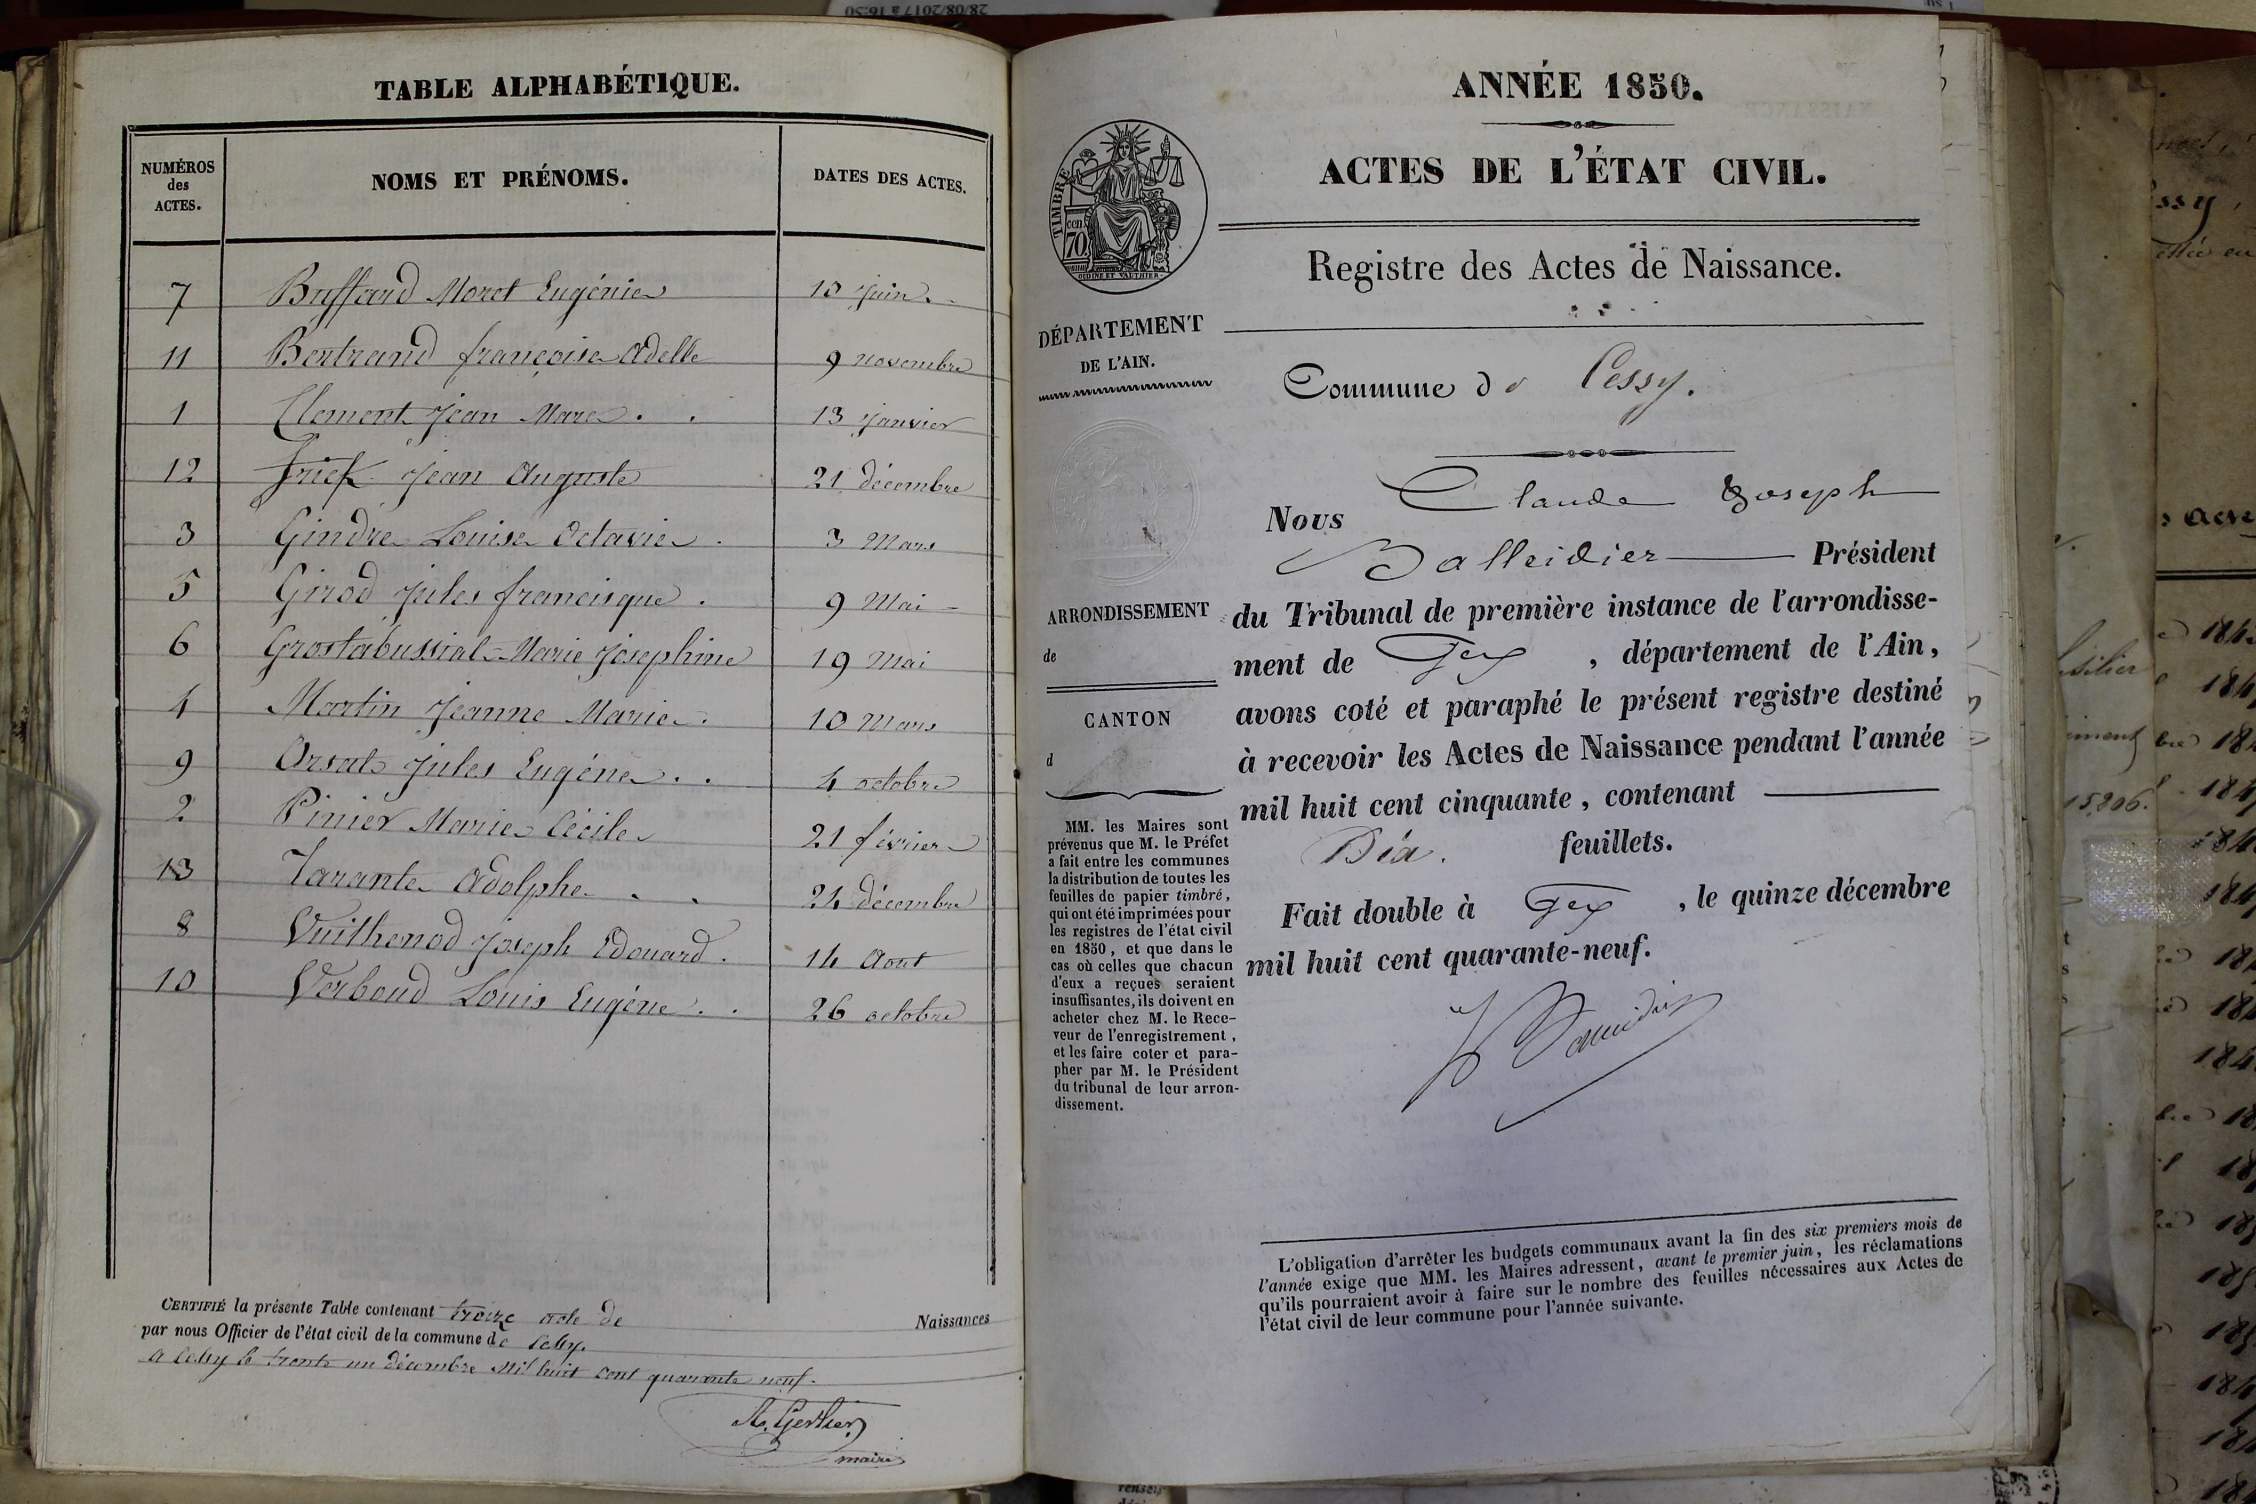 TABLE ALPHABÉTIQUE.
NUMÉROS
des
ACTES.
NOMS ET PRÉNOMS.
DATES DES ACTES.
7 Buffard Moret Eugénie 10 Juin.
11 Bertrand françoise Adelle 9 novembre
1 Clement Jean Marc . . 13 Janvier
12 Frick Jean Auguste 21 décembre
3 Gindre Louise Octavie . 3 Mars
5 Girod Jules francisque . 9 Mai
6 Marie Josephine 19 Mai
4 Martin Jeanne Marie . 10 Mars
9 Orsat Jules Eugéne . . 4 octobre
2 Pinier Marie Cécile 21 février
13 Adolphe . . 24 décembre
8 Joseph Edouard . 14 Aout
10 Louis Eugéne . . 26 octobre
CERTIFIÉ la présente Table contenant treize acte de Naissances
par nous Officier de l'état civil de la commune de Cessy.
a Cessy le trente un décembre mil huit cent quarante neuf.
maire
ANNÉE 1850.
ACTES DE L'ÉTAT CIVIL.
Registre des Actes de Naissance.
TIMBRE
70 cen
OUDINÉ ET VAUTHIER
DÉPARTEMENT
DE L'AIN.
ARRONDISSEMENT
de
CANTON
d
MM. les Maires sont
prévenus que M. le Préfet
a fait entre les communes
la distribution de toutes les
feuilles de papier timbré,
qui ont été imprimées pour
les registres de l'état civil
en 1850, et que dans le
cas où celles que chacun
d'eux a reçues seraient
insuffisantes, ils doivent en
acheter chez M. le Rece-
veur de l'enregistrement,
et les faire coter et para-
pher par M. le Président
du tribunal de leur arron-
dissement.
Commune de Cessy.
Nous Claude Joseph
Balleidier Président
du Tribunal de première instance de l'arrondisse-
ment de Gex, département de l'Ain,
avons coté et paraphé le présent registre destiné
à recevoir les Actes de Naissance pendant l'année
mil huit cent cinquante, contenant
Dix. feuillets.
Fait double à Gex, le quinze décembre
mil huit cent quarante-neuf.
L'obligation d'arrêter les budgets communaux avant la fin des six premiers mois de
l'année exige que MM. les Maires adressent, avant le premier juin, les réclamations
qu'ils pourraient avoir à faire sur le nombre des feuilles nécessaires aux Actes de
l'état civil de leur commune pour l'année suivante.
28/08/2017 à 16:50